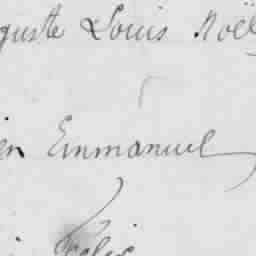 guste Louis Noël
en Emmanuel
Felix